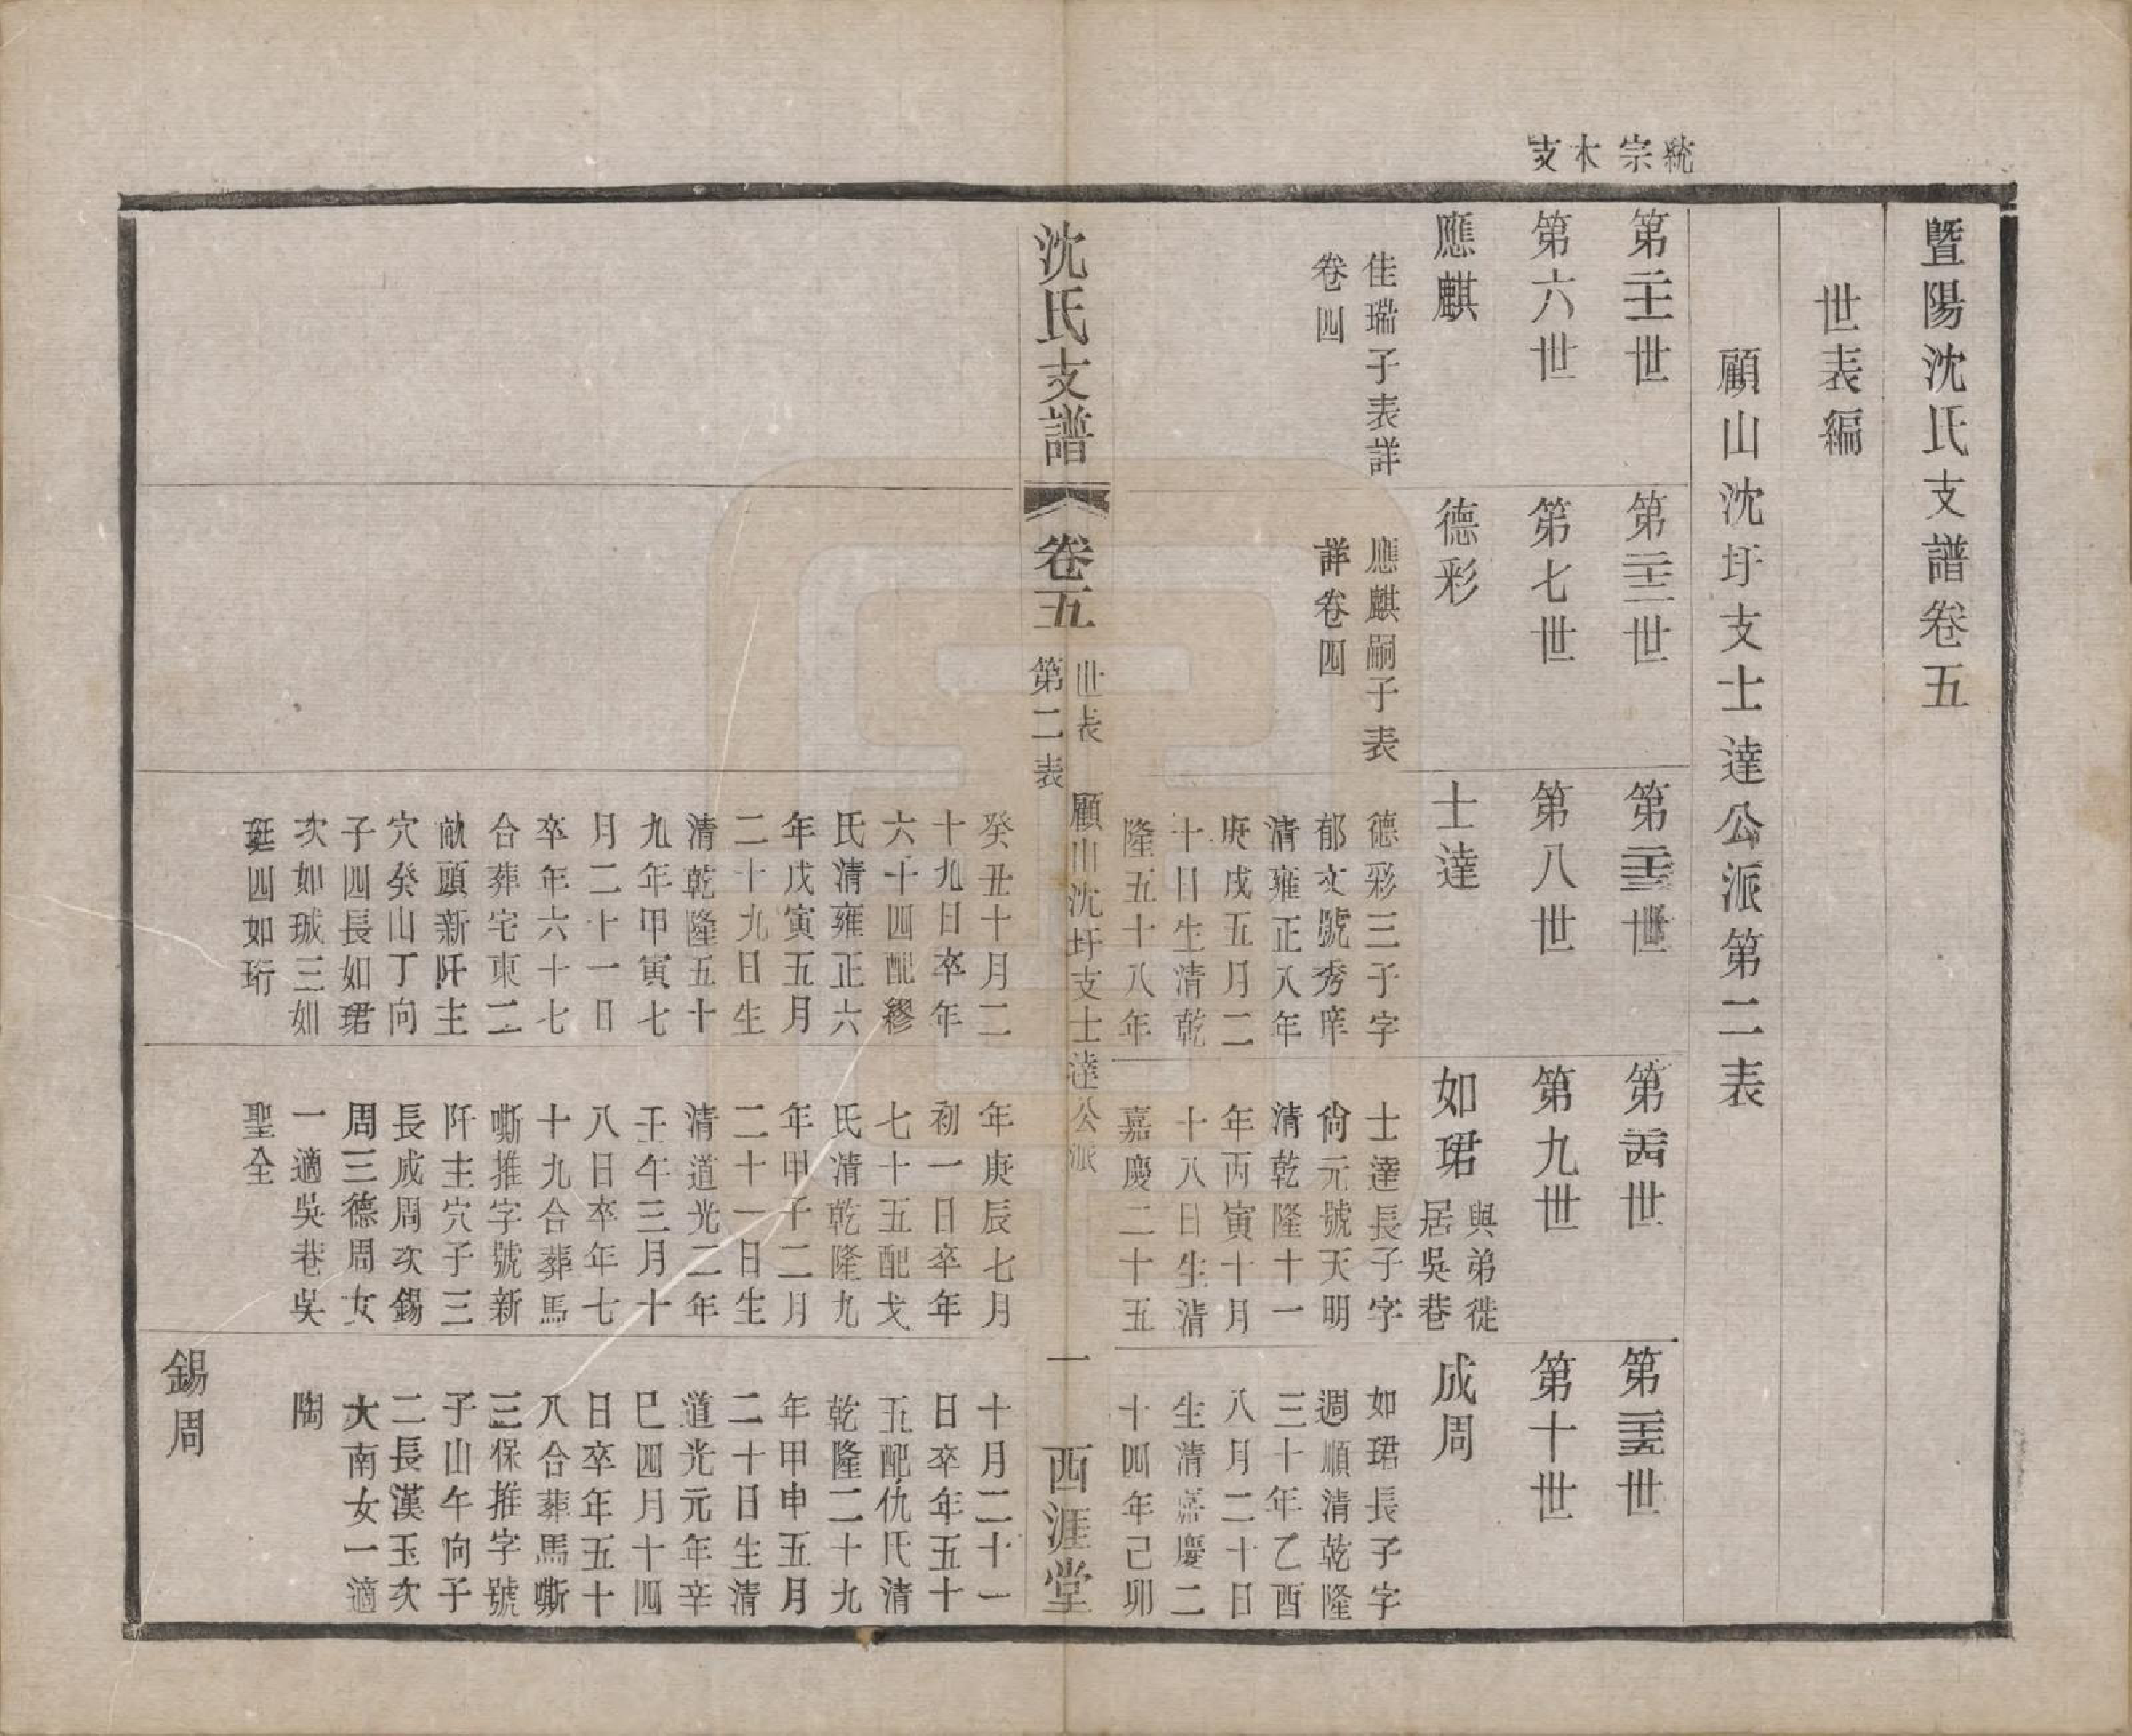 統宗
本支
暨陽沈氏支譜卷五
世表編
顧山沈圩支士達公派第二表
第二十一世
第六世
應麒
佳瑞子表詳
卷四
第二十二世
第七世
德彩
應麒嗣子表
詳卷四
第二十三世
第八世
士達
德彩三子字
郁文號秀庠
清雍正八年
庚戌五月二
十日生清乾
隆五十八年
癸丑十月二
十九日卒年
六十四配繆
氏清雍正六
年戊寅五月
二十九日生
清乾隆五十
九年甲寅七
月二十一日
卒年六十七
合葬宅東二
畝頭新阡主
穴癸山丁向
子四長如珺
次如珹三如
珽四如珩
第二十四世
第九世
如珺
與弟徙
居吳巷
士達長子字
尙元號天明
清乾隆十一
年丙寅十月
十八日生清
嘉慶二十五
年庚辰七月
初一日卒年
七十五配戈
氏清乾隆九
年甲子二月
二十一日生
清道光二年
壬午三月十
八日卒年七
十九合葬馬
嘶推字號新
阡主穴子三
長成周次錫
周三德周女
一適吳巷吳
聖全
第二十五世
第十世
成周
如珺長子字
週順清乾隆
三十年乙酉
八月二十日
生清嘉慶二
十四年己卯
十月二十一
日卒年五十
五配仇氏清
乾隆二十九
年甲申五月
二十日生清
道光元年辛
巳四月十四
日卒年五十
八合葬馬嘶
三保推字號
子山午向子
二長漢玉次
大南女一適
陶
錫周
沈氏支譜
卷五
世表
第二表
顧山沈圩支士達公派
一
西涯堂